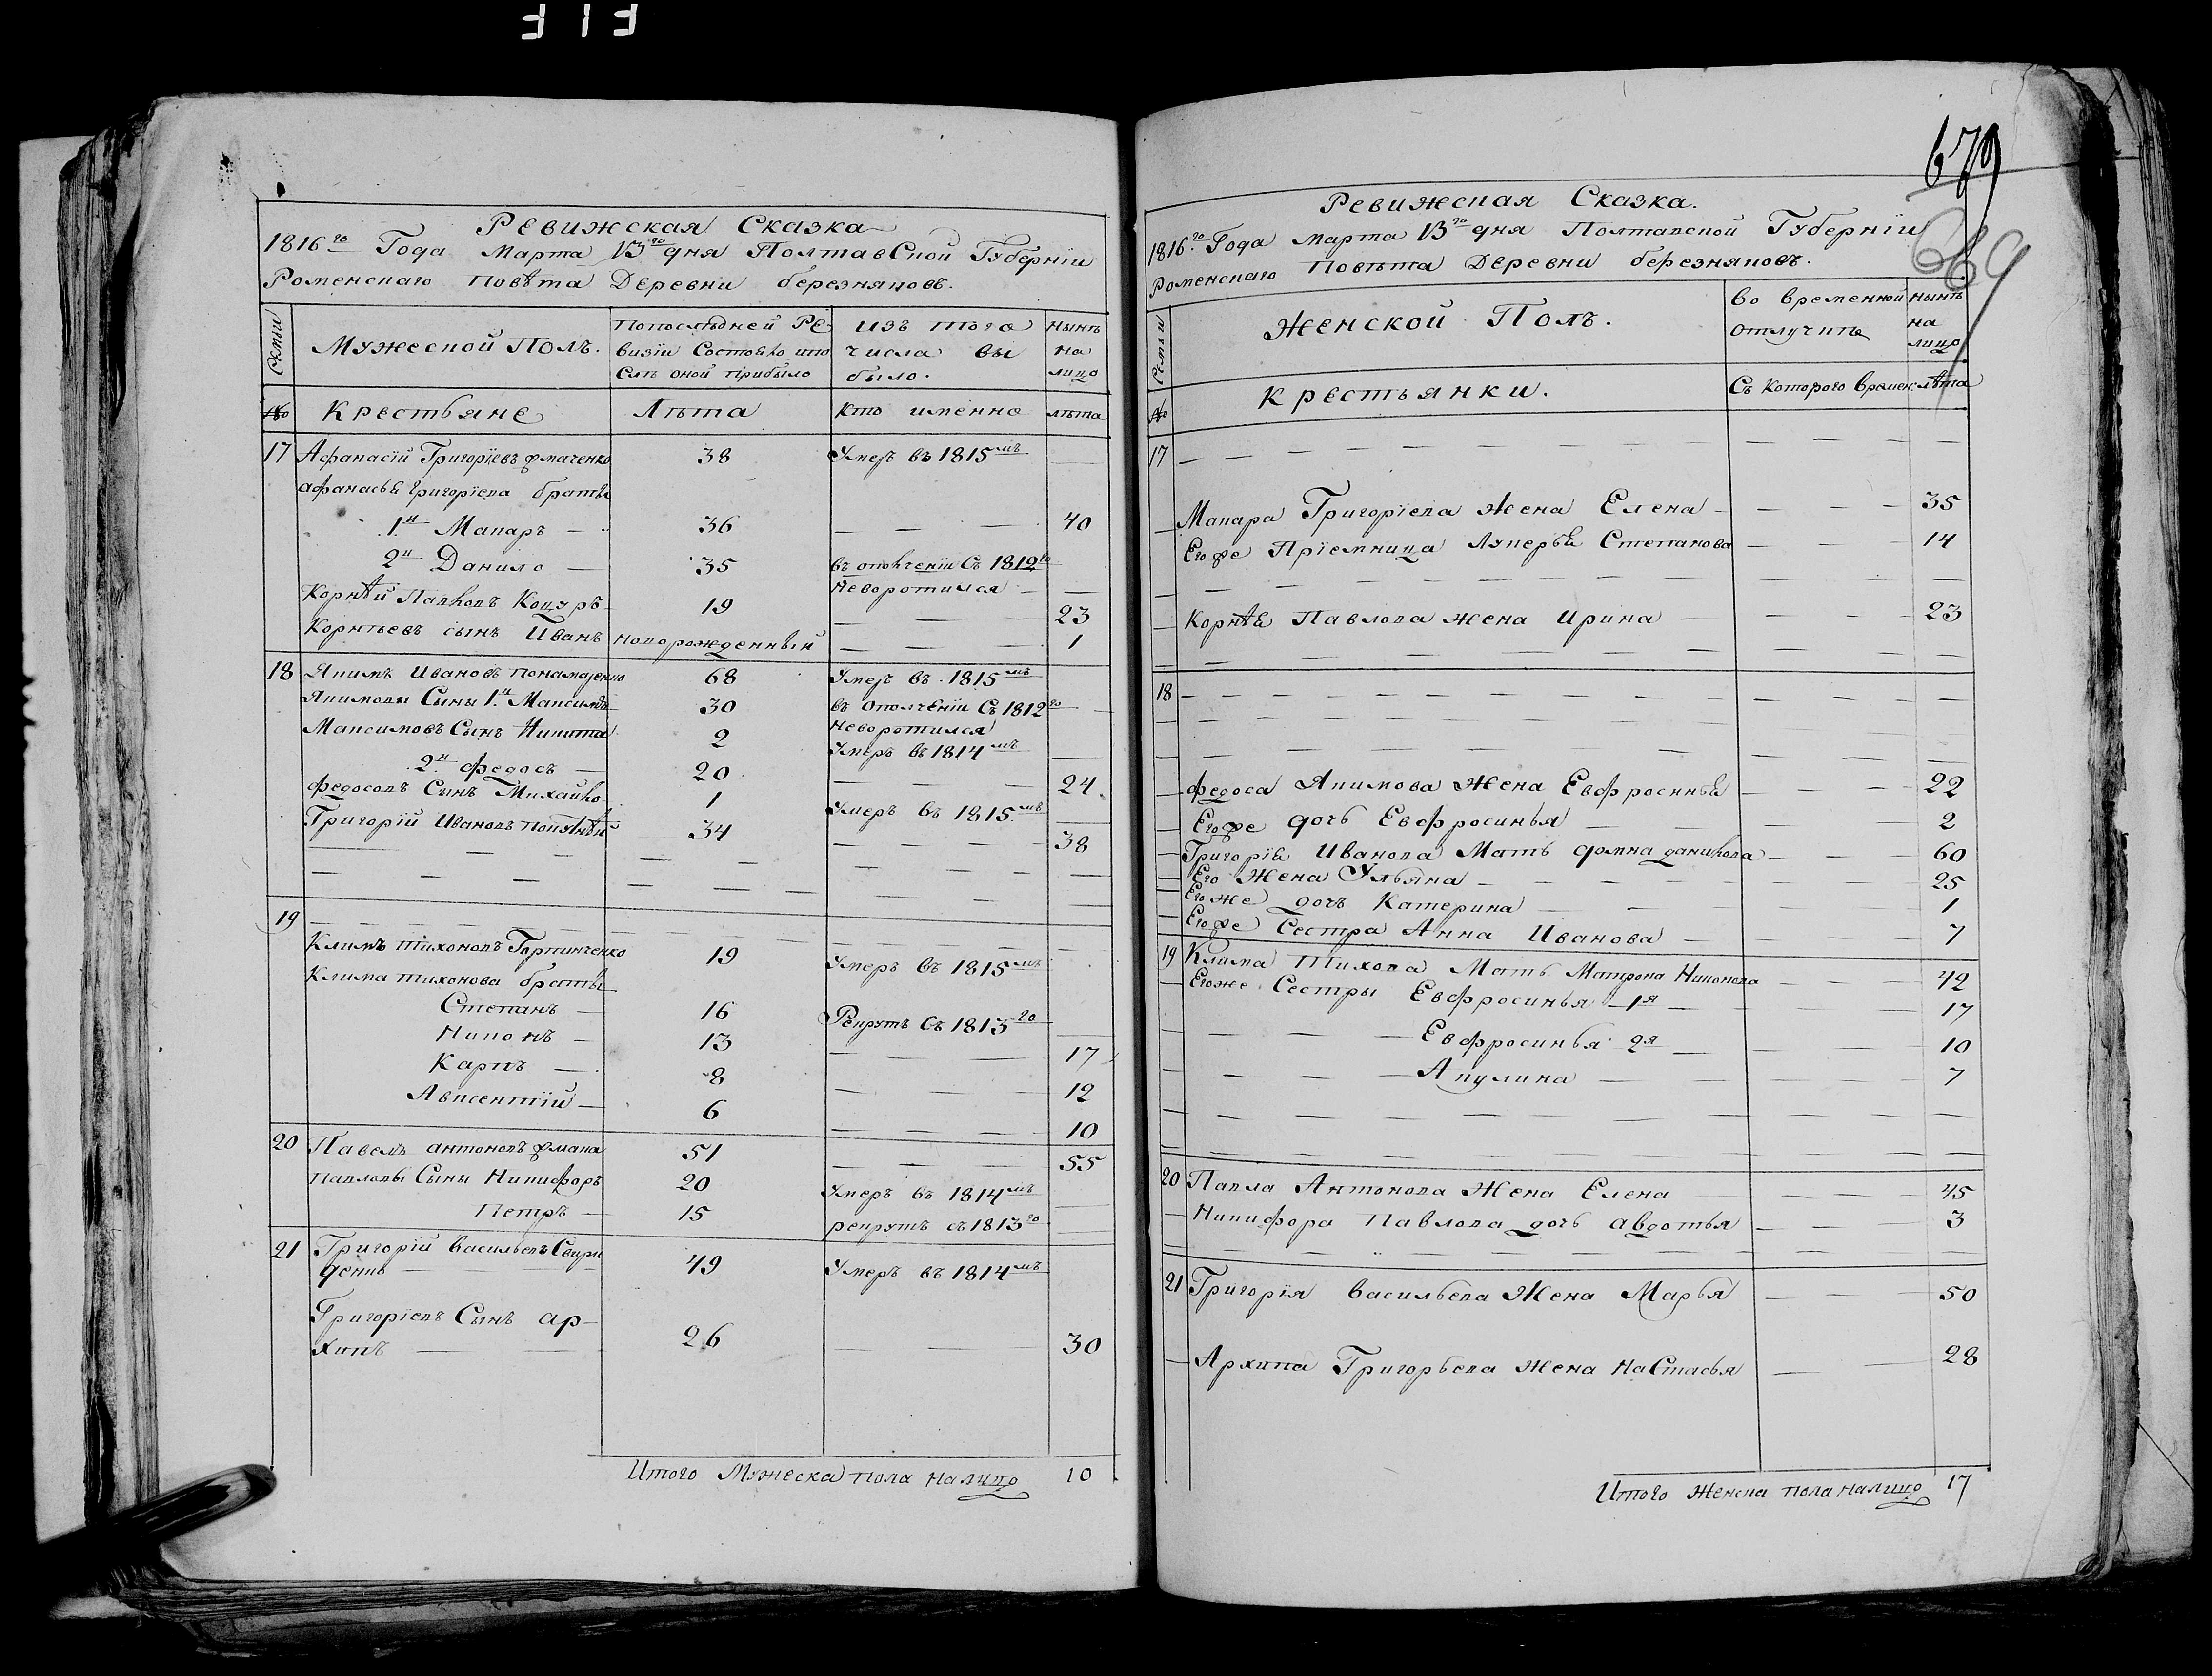 313
Ревижская Сказка
1816го Года Марта 13го дня Полтавской Губернїи
Роменскаго Повѣта Деревни березняковъ.
Семьи
Мужеской Полъ.
Попослѣдней Ре
визїи Состояло ипо
слѣ оной прибыло
изъ того
числа вы
было.
Нынѣ
на
лицо
№
Крестьяне
Лѣта
Кто именно
лѣта
17 Афанасїй Григорїевъ 38 Умеръ въ 1815мъ
афанасья григорїева братья
1й Макаръ 36 40
2й Данило 35 въ ополченїи Съ 1812го
Неворотился
Корнѣй Павловъ Коцуръ 19 23
Корнѣевъ сынъ Иванъ новорожденный 1
18 Якимъ Ивановъ понамаренко 68 Умеръ въ 1815мъ
Якимовы Сыны 1й Максимъ 30 въ Ополченїи Съ 1812го
Неворотился
Максимовъ Сынъ Никита 2 Умеръ въ 1814мъ
2й федосъ 20 24
федосовъ Сынъ Михайло 1 Умеръ въ 1815мъ
Григорїй Ивановъ 34 38
19
Климъ тихоновъ 19 Умеръ въ 1815мъ
Клима тихонова братья
Степанъ 16 Рекрутъ Съ 1813го
Никонъ 13 17
Карпъ 8 12
Авксентїй 6 10
20 Павелъ антоновъ 51 55
Павловы Сыны Никифоръ 20 Умеръ въ 1814мъ
Петръ 15 рекрутъ съ 1813го
21 Григорїй васильевъ Свири
денко 49 Умеръ въ 1814мъ
Григорїевъ Сынъ ар-
хипъ 26 30
Итого Мужеска пола налицо 10
679
669
Ревижская Сказка.
1816го Года марта 13го дня Полтавской Губернїи
Роменскаго Повѣта Деревни березняковъ.
Семьи
Женской Полъ.
во временной
отлучкѣ
нынѣ
на
лицо
№
Крестьянки.
Съ Которого времен
лѣта
17
Макара Григорїева Жена Елена 35
Его же Прїемница Лукерья Степанова 14
Корнѣя Павлова жена Ирина 23
18
федоса Якимова Жена Евфросинья 22
Его же дочь Евфросинья 2
Григорїя Иванова Мать домна данилова 60
Его Жена Ульяна 25
Его же дочь Катерина 1
Его же Сестра Анна Иванова 7
19 Клима Тихова Мать Матрона Никонова 42
Его же Сестры Евфросинья 1я 17
Евфросинья 2я 10
Акулина 7
20 Павла Антонова Жена Елена 45
Никифора Павлова дочь авдотья 3
21 Григорїя васильева Жена Марья 50
Архипа Григорьева жена настасья 28
Итого Женска пола налицо 17